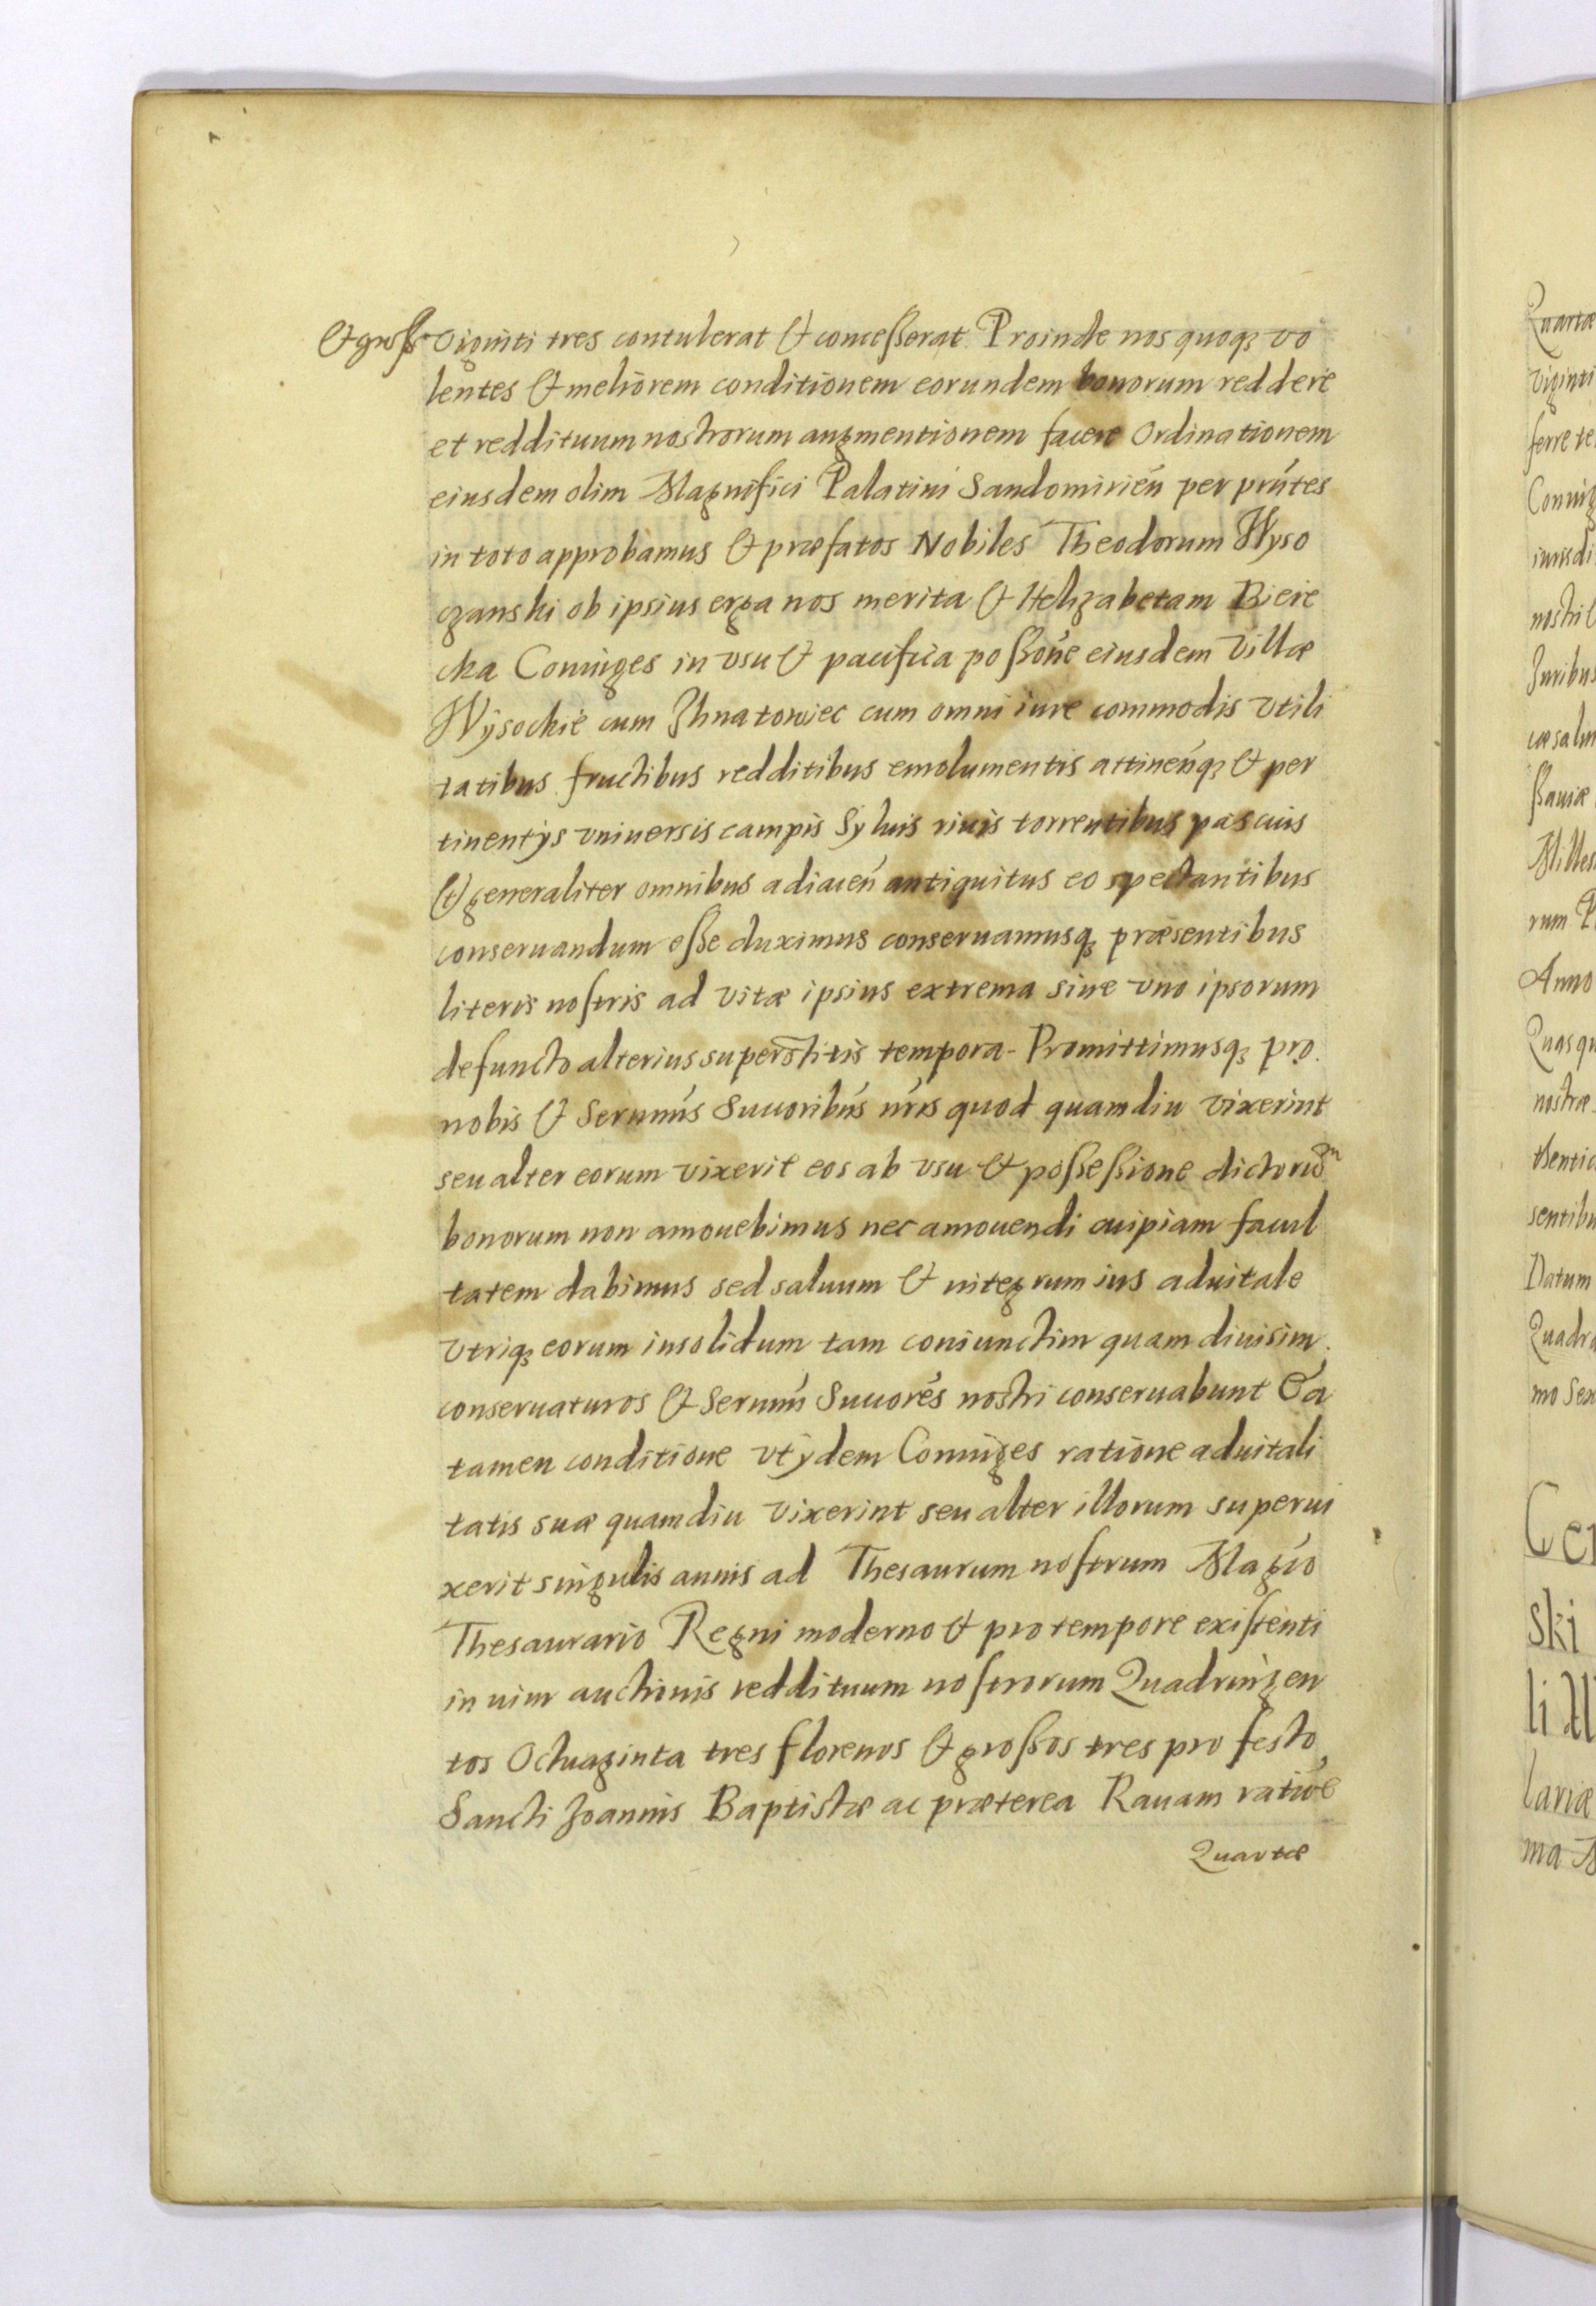 & gross viginti tres contulerat & concesserat Proinde nos quoq; vo
lentes & meliorem conditionem eorundem bonorum reddere
et reddituum nostrorum augmentionem facere Ordinationem
eiusdem olim Magnifici Palatini Sandomirień per pńtes
in toto approbamus & præfatos Nobiles Theodorum Wyso
czanski ob ipsius erga nos merita & Helizabetam Bieie
cka Coniuges in vsu & pacifica possone eiusdem Villæ
Wysockie cum Ihnatowiec cum omni iure commodis vtili
tatibus fructibus redditibus emolumentis attineńq; & per
tinentys vniuersis campis Syluis riuis torrentibus pascuis
& generaliter omnibus adiaceń antiquitus eo spectantibus
conseruandum esse duximus conseruamusq; præsentibus
literis nostris ad vitæ ipsius extrema siue vno ipsorum
defuncto alterius superstitis tempora - Promittimusq; pro
nobis & Sermis Succoribus nris quod quamdiu vixerint
seu alter eorum vixerit eos ab vsu & possessione dictorum
bonorum non amouebimus nec amouendi cuipiam facul
tatem dabimus sed saluum & integrum ius aduitale
vtriq; eorum insolidum tam coniunctim quam diuisim
conseruaturos & Sermi Succores nostri conseruabunt Ea
tamen conditione vt ydem Coniuges ratione aduitali
tatis suæ quamdiu vixerint seu alter illorum superui
xerit singulis annis ad Thesaurum nostrum Magco
Thesaurario Regni moderno & pro tempore existenti
in uim auctionis reddituum nostrorum Quadringen
tos Octuaginta tres florenos & grossos tres pro festo
Sancti Joannis Baptistæ ac præterea Rauam ratioe
Quartæ
Quartæ
viginti
ferre te
Coniug
iurisdi
nostri
Juribus
cæ salu
ssauiæ
Milles
rum P
Anno
Quas qu
nostræ
thentic
sentibu
Datum
Quadra
mo Sex
Cer
ski
li
lariæ
ma